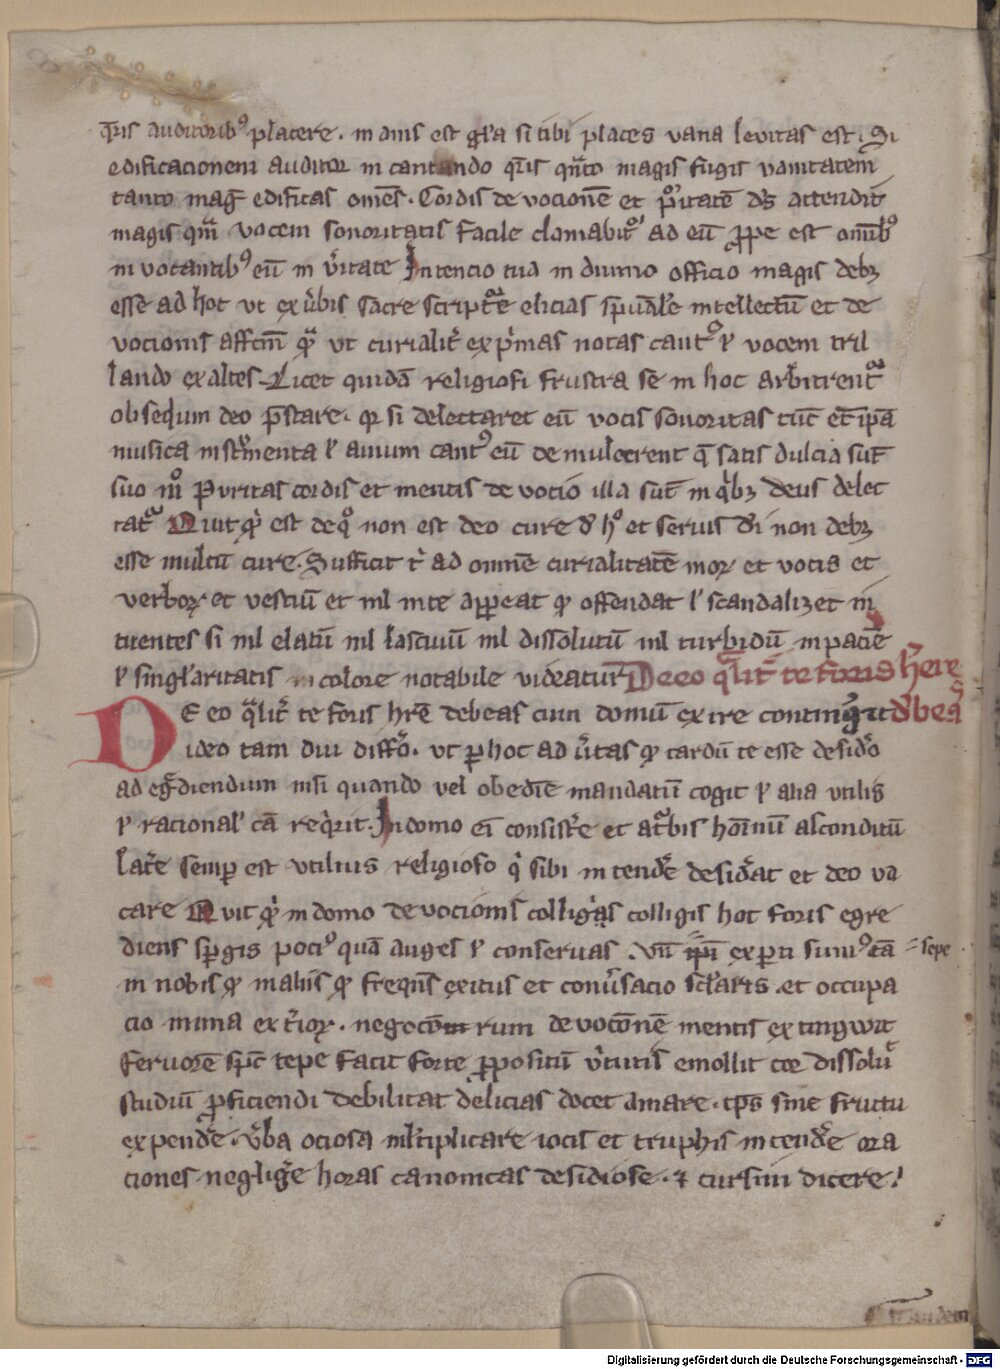 q̄ris auditorib⁹ placere . in anis est gl̄a si tibi places vana levitas est . Si
edificacionem auditor̄ in cantando q̄ris q̄nto magis fugis vanitatem
tanto maḡ edificas om̄es . Cordis devocionē et pͥtatē d̄s attendit
magis qͣm vocem sonoritatis facile clamabit᷑ ad eū ꝓpe est om̄ib⁹
invocantib⁹ eū in v̓itate Intencio tua in divino officio magis debꝫ
esse ad hoc vt ex v̓bis sacre scriptͣe elicias spūal̓e intellectū et de
vocionis affc̄m qͣ vt curialit̓ expͥmas notas cant⁹ ł vocem tril
lando exaltes . Licet quidā religiosi frustra se in hoc arbitrent᷑
obsequium deo p̄stare . qr si delectaret eū vocis sonoritas tūc etͥ ip̄a
musica inst̓menta ł avium cant⁹ eū demulcerent q̄ satis dulcia sūt
suo mͦ Puritas cordis et mentis devotio illa sūt in qͥbꝫ deus delec
tat᷑ Quit qͥ est de qͦ non est deo cure d̓ hͦ et servis dei non debꝫ
esse multū cure . Sufficit t̓ ad omnē curialitatē morꝫ et vocis et
verborꝫ et vestiū et nil in te appeat qͦ offendat ł scandalizet in
tuentes si nil elatū nil lascivū nil dissolutū nil turbidū inpaciē
ł singl̓aritatis in colore notabile videatur De eo q̄lit̓ te foris h̓ere
DE eo q̄lit̓ te foris hr̄e debeas cum domū exire contingit d̓beas
ideo tam diu diffͦ . vt p̱ hoc ad v̓tas qͦ tardū te esse desid̓o
ad egͣdiendum nisi quando vel obedīe mandatū cogit ł alia vtilis
ł racional̓ cā reqͥrit . In domo ei consist̓e et at̓bis hoīnū absconditū
lat̓e semꝑ est vtilius religioso qͥ sibi intend̓e desid̓at et deo va
care Quit qͥ in domo devocionis colligͣs colligis hoc foris egre
diens spͣgis poci⁹ quā auges ł conservas . Vn̄ exp̱ti sum⁹ tā =sepe
in nobis qͦ in aliis qͦ freqn̄s exitus et conv̓sacio sc̄l̓aris . et occupa
cio nimia ext̓iorꝫ . negocōrum devocōnē mentis extingwit
fervorē spc̄ tepe facit forte ꝓpositū v̓tutis emollit cor̄ dissolū
studiū ꝓficiendi debilitat delicias docet amare . tp̄s sine fructu
expend̓e . v̓ba ociosa ml̓tiplicare iocis et truphis intend̓e ora
ciones neglig̓e horas canonicas desidiose . ⁊ cursim dicere
Digitalisierung gefördert durch die Deutsche Forschungsgemeinschaft - DFG